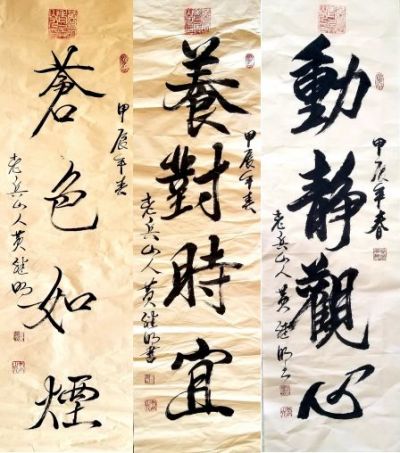 甲辰年春
動靜觀心
老兵山人黄继明书
甲辰年春
養對時宜
老兵山人黄继明書
甲辰年春
蒼色如煙
老兵山人黄继明